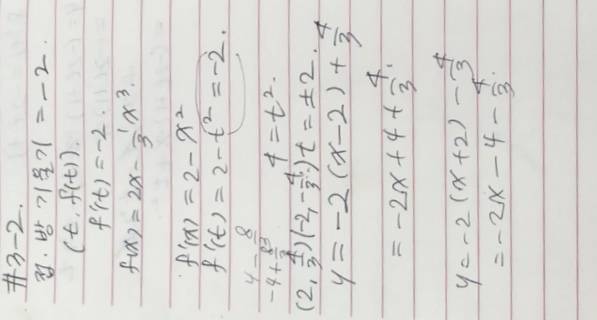 #3-2.
점. 방 기울기 = -2.
(t, f(t)).
f'(t) = -2.
f(x) = 2x - 1/3 x³.
f'(x) = 2 - x²
f'(t) = 2 - t² = -2.
4 - 8/3
4 = t².
-4 + 8/3
(2, 4/3) (-2, -4/3) t = ±2.
y = -2(x-2) + 4/3
= -2x + 4 + 4/3.
y = -2(x+2) - 4/3
= -2x - 4 - 4/3.